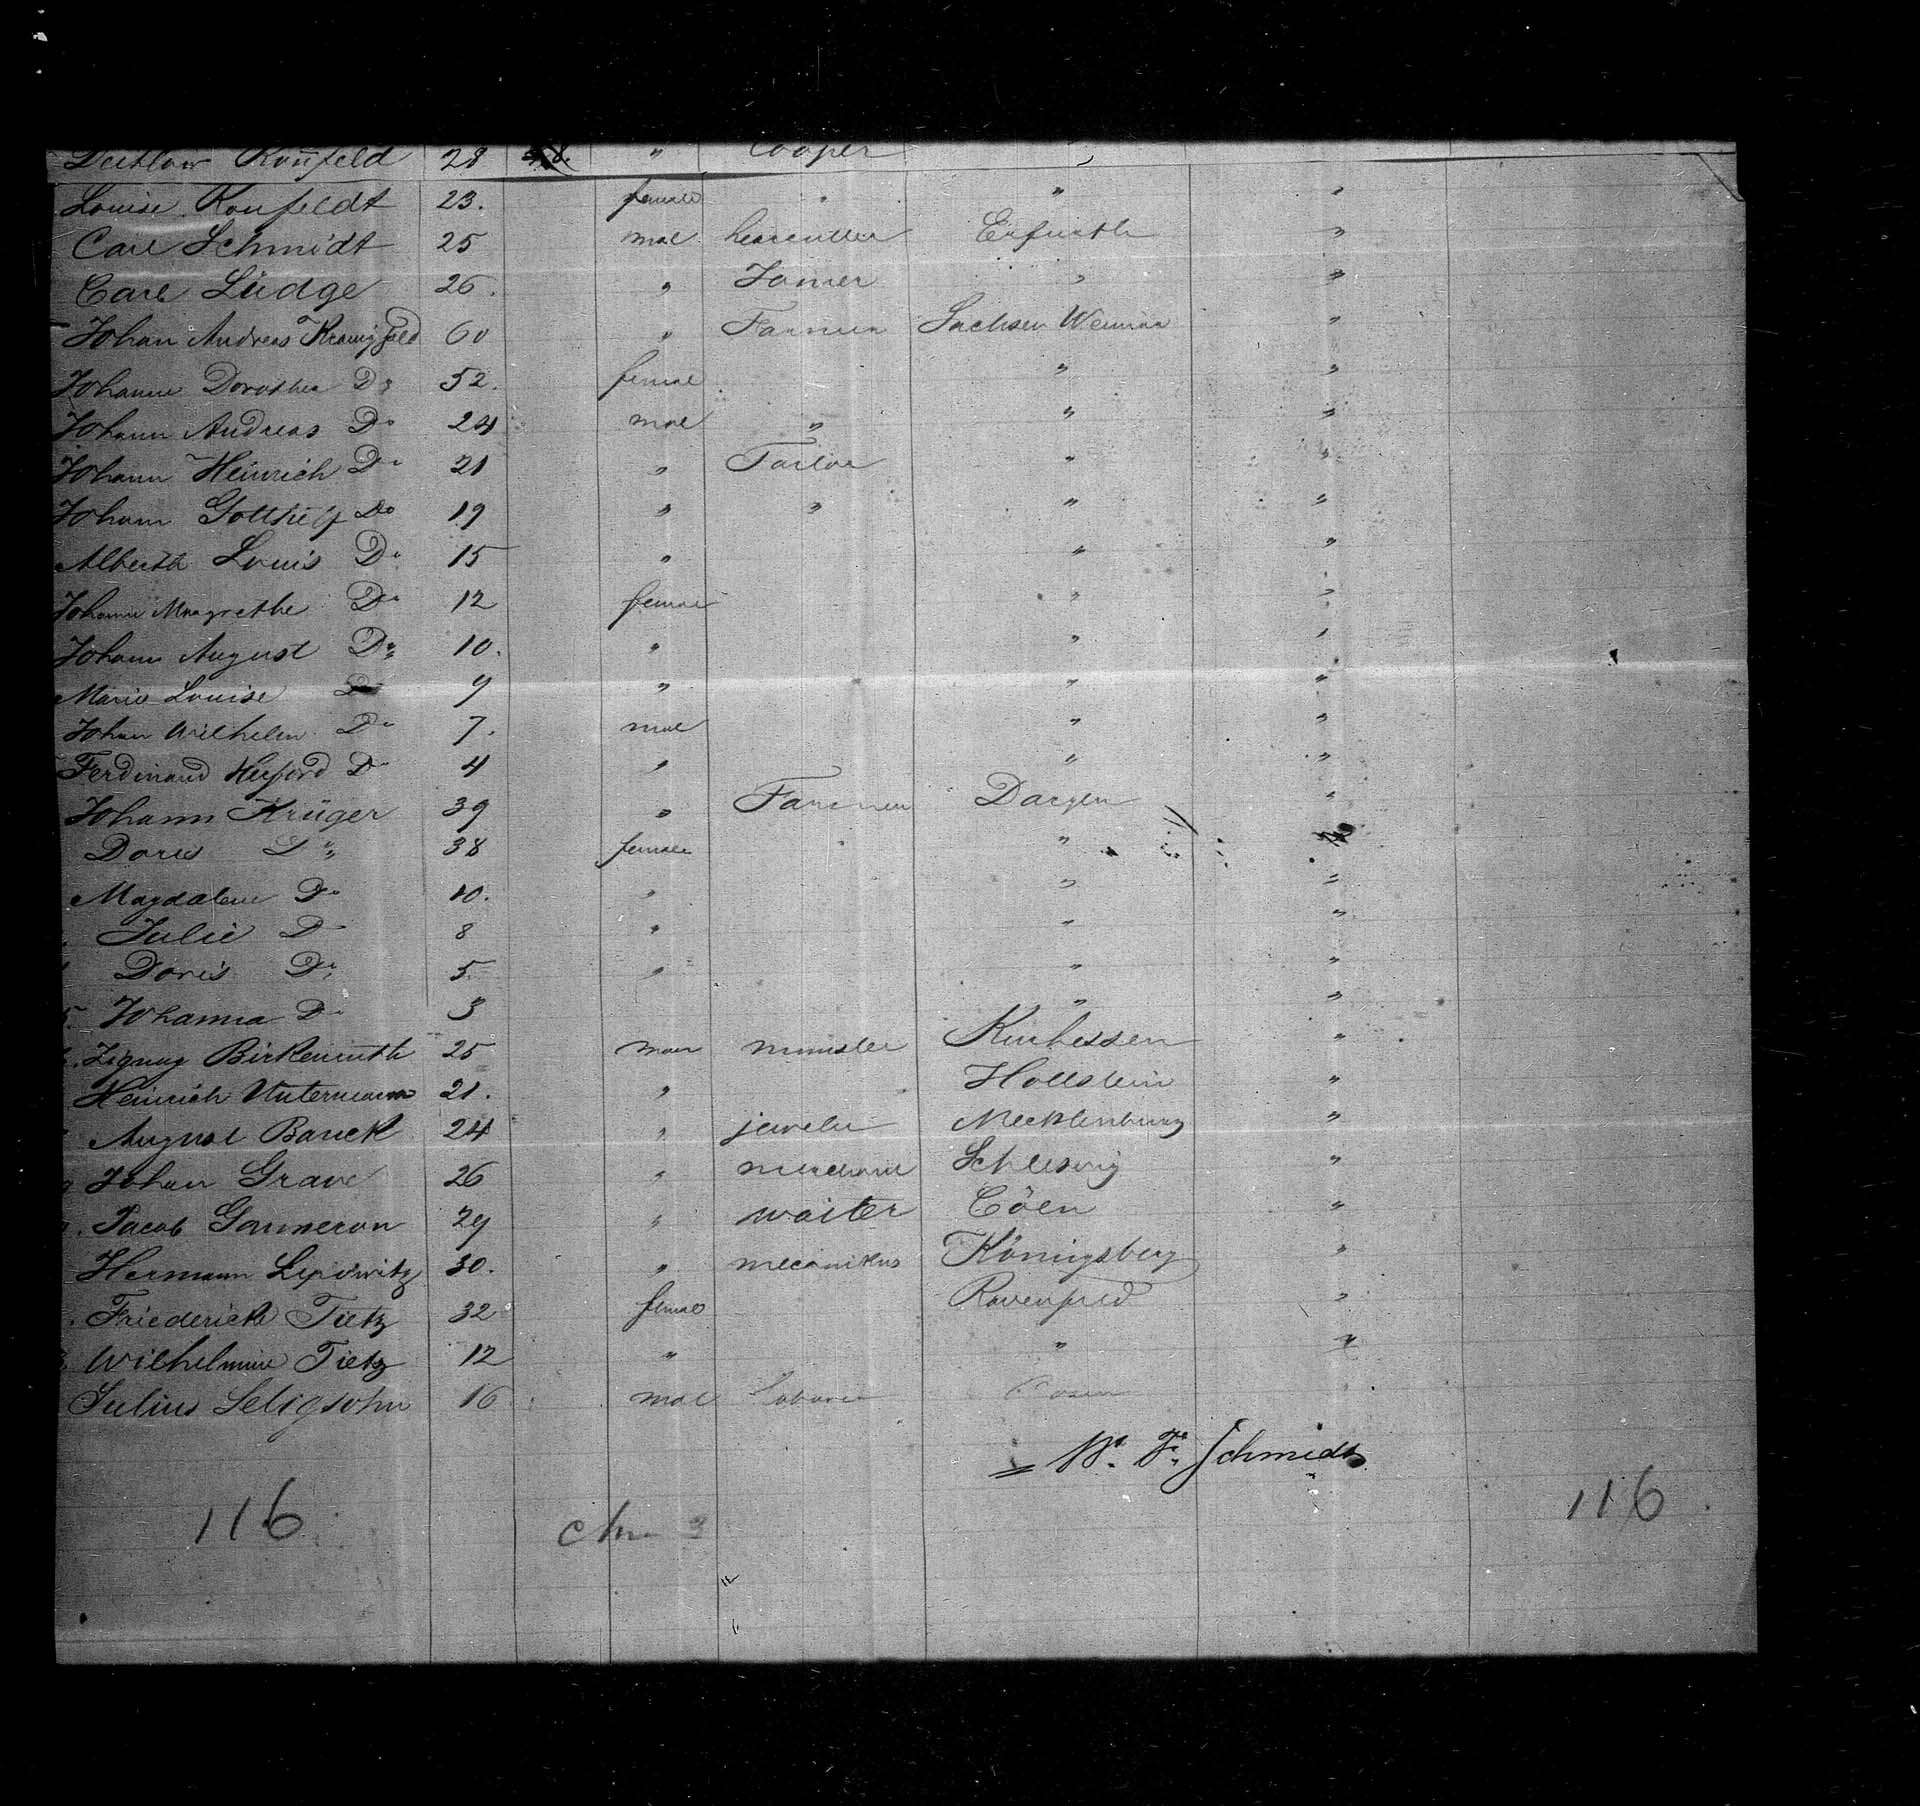 Detlow Konfeld 28 8. " Cooper "
Louise Konfeldt 23. female " " "
Carl Schmidt 25 mal Erfurth "
Carl Lüdge 26. " " "
Johan Andreas 60 " Farmer Sachsen Weimar "
Johanne Dorothea Do 52. female " "
Johann Andreas Do 24 mal " " "
Johann Heinrich Do 21 " Tailor " "
Johann Do 19 " " " "
Alberth Louis Do 15 " " "
Johanne Maagrethe Do 12 female " "
Johann August Do 10. " " "
Marie Louise Do 9 " " "
Johan Wilhelm Do 7. mal " "
Ferdinand Do 4 " " "
Johann Krüger 39 " Farmer Dargen "
Dores Do 38 female " "
Magdalene Do 10. " " "
Julie Do 8 " " "
Doris Do 5. " " "
Johanna Do 3 " "
Birkenruth 25 man minister Kurhessen "
Heinrich 21. " Hollstein "
August Banck 24 " jeweler Mecklenburg "
Johan Grave 26 " Schleswig "
Jacob Gonneron 29 " waiter Cöln "
Hermann 30. " mecanikus Königsberg "
Friederick Tietz 32 female "
Wilhelmine Tietz 12 " " "
Julius Seligsohn 16 mal
W. F. Schmidt
116 116